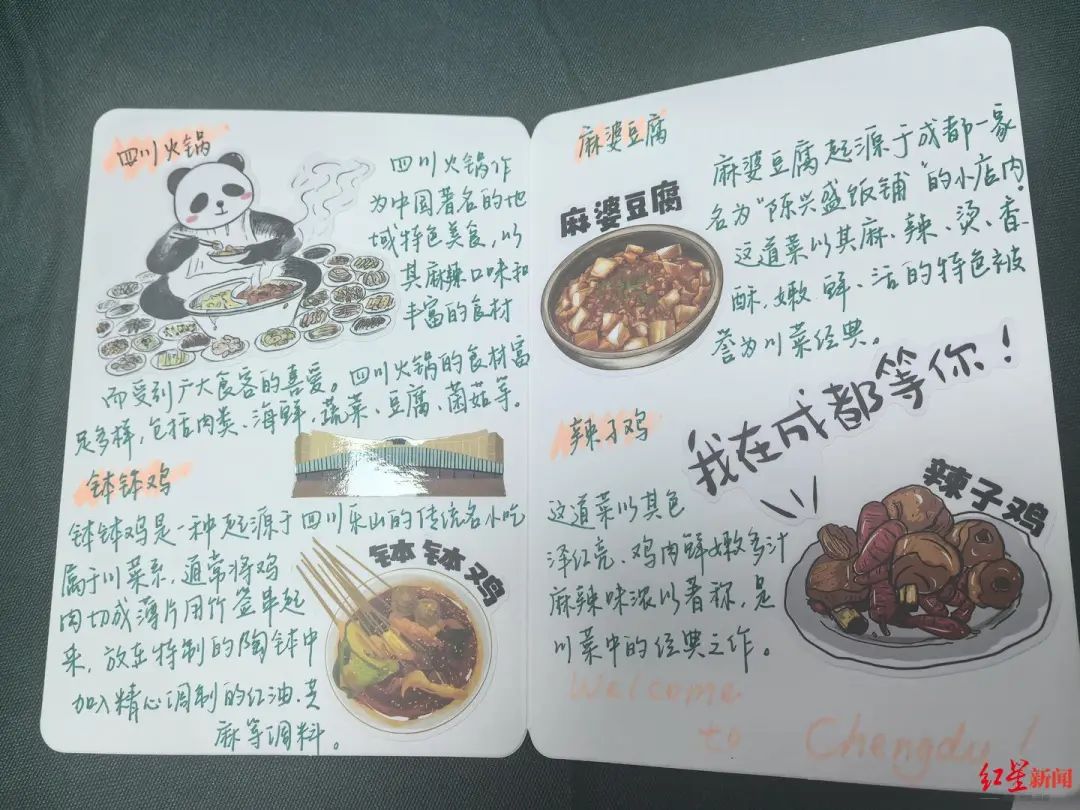 四川火锅
四川火锅作
为中国著名的地
域特色美食，以
其麻辣口味和
丰富的食材
而受到广大食客的喜爱。四川火锅的食材富
足多样，包括肉类、海鲜、蔬菜、豆腐、菌菇等。
钵钵鸡
钵钵鸡是一种起源于四川乐山的传统名小吃
属于川菜系，通常将鸡
肉切成薄片用竹签串起
来，放在特制的陶钵中
加入精心调制的红油、芝
麻等调料。
钵钵鸡
麻婆豆腐
麻婆豆腐
麻婆豆腐起源于成都一家
名为“陈兴盛饭铺”的小店内。
这道菜以其麻、辣、烫、香、
酥、嫩、鲜、活的特色被
誉为川菜经典。
我在成都等你！
辣子鸡
这道菜以其色
泽红亮、鸡肉鲜嫩多汁
麻辣味浓以著称，是
川菜中的经典之作。
辣子鸡
Welcome
to Chengdu！
红星新闻